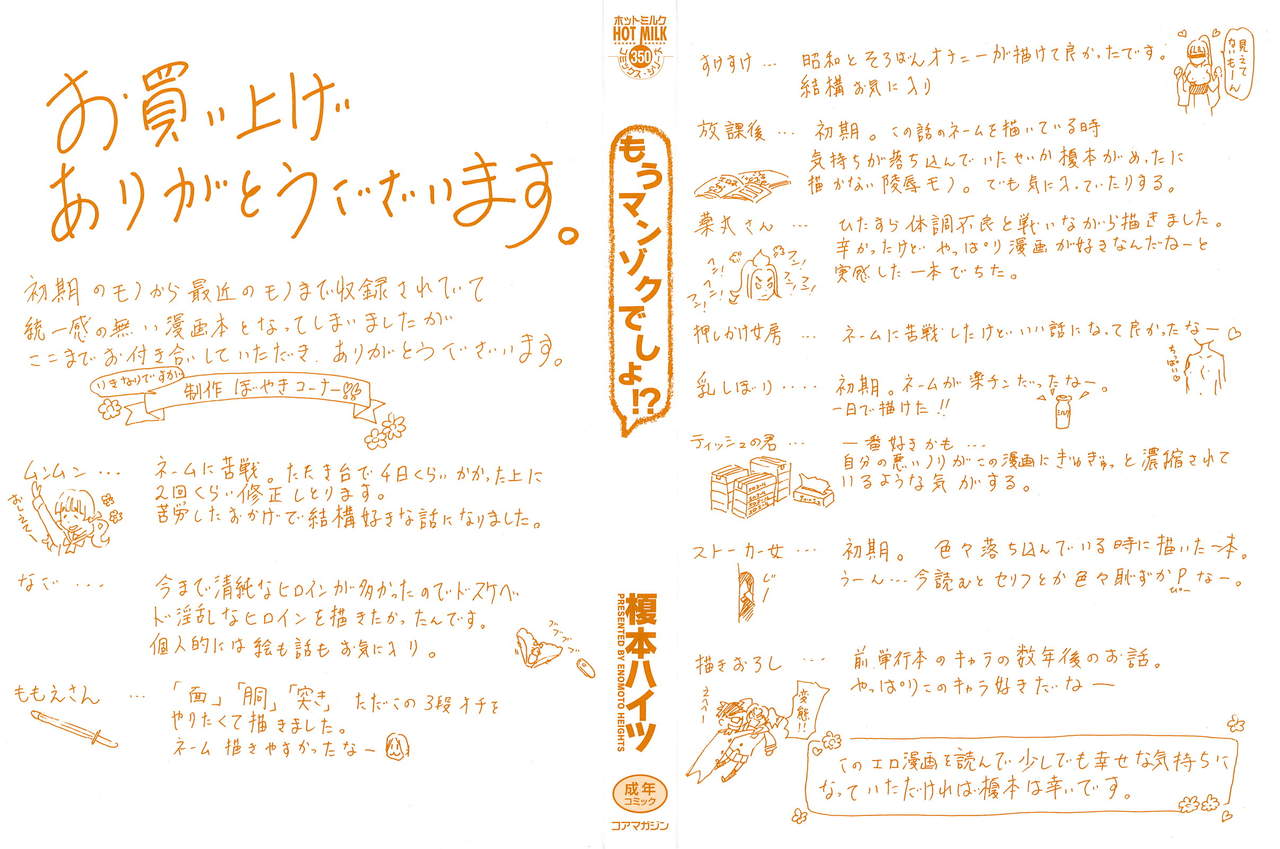 お買い上げ
ありがとうございます。
初期のモノから最近のモノまで収録されていて
統一感の無い漫画本となってしまいましたが
ここまでお付き合いしていただき、ありがとうございます。
いきなりですが
制作 ぼやきコーナー
ムンムン…
ネームに苦戦。たたき台で4日くらいかかった上に
2回くらい修正しとります。
苦労したおかげで結構好きな話になりました。
おしえてー
なご…
今まで清純なヒロインが多かったのでドスケベ
ド淫乱なヒロインを描きたかったんです。
個人的には絵も話もお気に入り。
ブブブブ
ももえさん…
「面」「胴」「突き」ただこの3段オチを
やりたくて描きました。
ネーム描きやすかったなー
ホットミルク
HOT MILK
350
コミックス・シリーズ
もうマンゾクでしょ!?
榎本ハイツ
PRESENTED BY ENOMOTO HEIGHTS
成年
コミック
コアマガジン
すけすけ…
昭和とそろばんオナニーが描けて良かったです。
結構お気に入り
見えて
ないもーん
放課後…
初期。この話のネームを描いている時
気持ちが落ち込んでいたせいか榎本がめったに
描かない陵辱モノ。でも気に入っていたりする。
薬丸さん…
ひたすら体調不良と戦いながら描きました。
辛かったけど やっぱり漫画が好きなんだなーと
実感した一本でした。
フン!フン!フン!フン!フン!
押しかけ女房…
ネームに苦戦したけどいい話になって良かったなー
ちっぱい
乳しぼり‥‥
初期。ネームが楽チンだったなー。
一日で描けた!!
ティッシュの君…
一番好きかも…
自分の悪いノリがこの漫画にぎゅぎゅっと濃縮されて
いるような気がする。
ストーカー女…
初期。色々落ち込んでいる時に描いた一本。
うーん…今読むとセリフとか色々恥ずかPなー。
ぴー
じー
描きおろし…
前単行本のキャラの数年後のお話。
やっぱりこのキャラ好きだなー
変態!!
このエロ漫画を読んで少しでも幸せな気持ちに
なっていただければ榎本は幸いです。